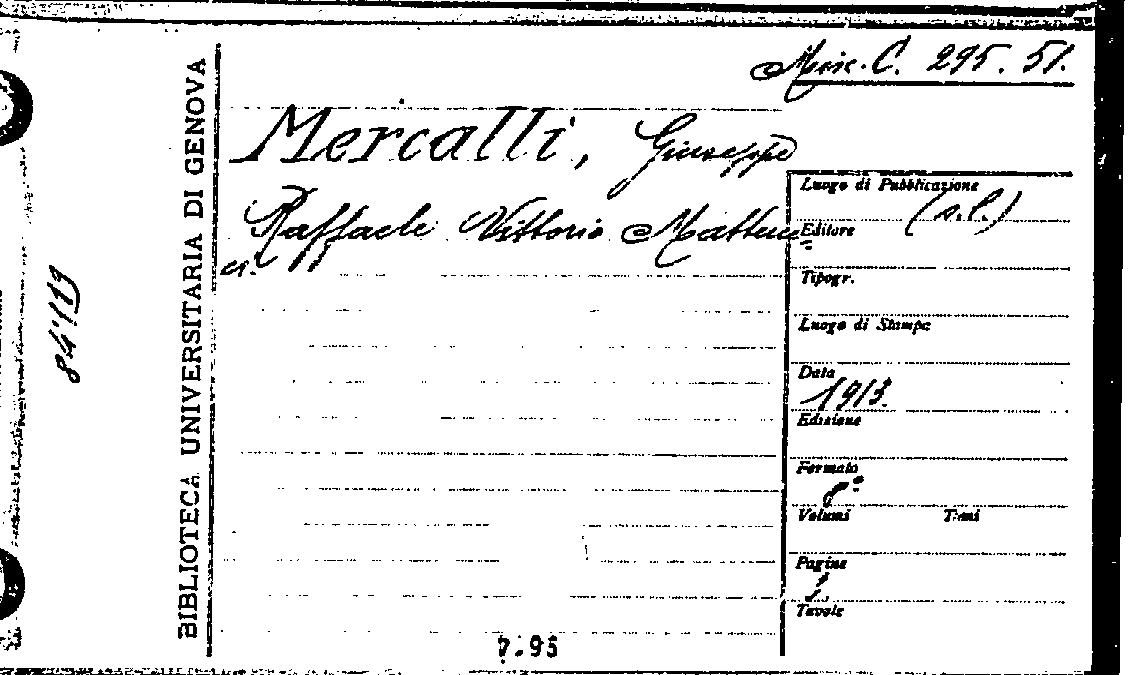 Misc. C. 295. 51.
Mercalli, Giuseppe
Raffaele Vittorio Matteuc=
ci.
BIBLIOTECA UNIVERSITARIA DI GENOVA
Luogo di Pubblicazione
(s.l.)
Editore
Tipogr.
Luogo di Stampa
Data
1913
Edizione
Formato
8°
Volumi Tomi
Pagine
Tavole